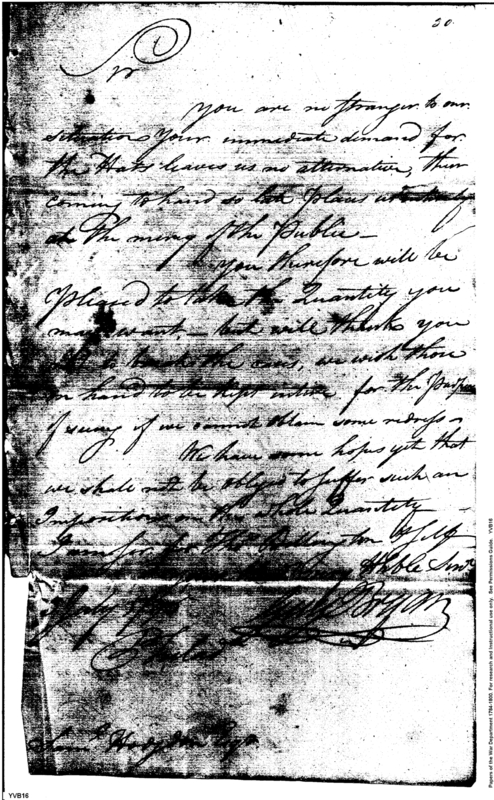 20.
Sir
You are no stranger to our
situation Your immediate demand for
the Hats leaves us no alternative, their
coming to hand so late places us
at the mercy of the Public —
You therefore will be
pleased to take the Quantity you
may want, — but will thank you
not to break the cases, we wish those
on hand to be kept intire for the Purpose
of if we cannot obtain some redress —
We have some hopes yet that
we shall not be obliged to suffer such an
Imposition on the whole Quantity —
I am for Billington & Self
Your Hble Servt
Phila
Saml. Hodgdon Esqr.
YVB16
Papers of the War Department 1784-1800. For research and instructional use only. See Permissions Guide. YVB16